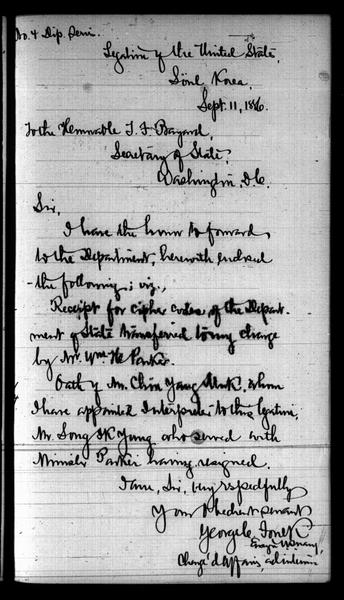 No. 4 Dip. Seri.
Legation of the United States,
Söul Korea,
Sept. 11, 1886.
To the Honorable T. F. Bayard,
Secretary of State,
Washington, D.C.
Sir,
I have the honor to forward
to the Department, herewith enclosed
the following; viz.,
Receipt for cipher codes of the Depart-
ment of State transferred to my charge
by Mr. Wm H. Parker.
Oath of Mr. Chin Yang Muk, whom
I have appointed Interpreter to this Legation,
Mr. Song IK Yung who served with
Minister Parker having resigned.
I am, Sir, very respectfully
Your obedient servant
George C. Foulk
Ensign U.S. Navy,
Chargé d'Affaires, ad interim